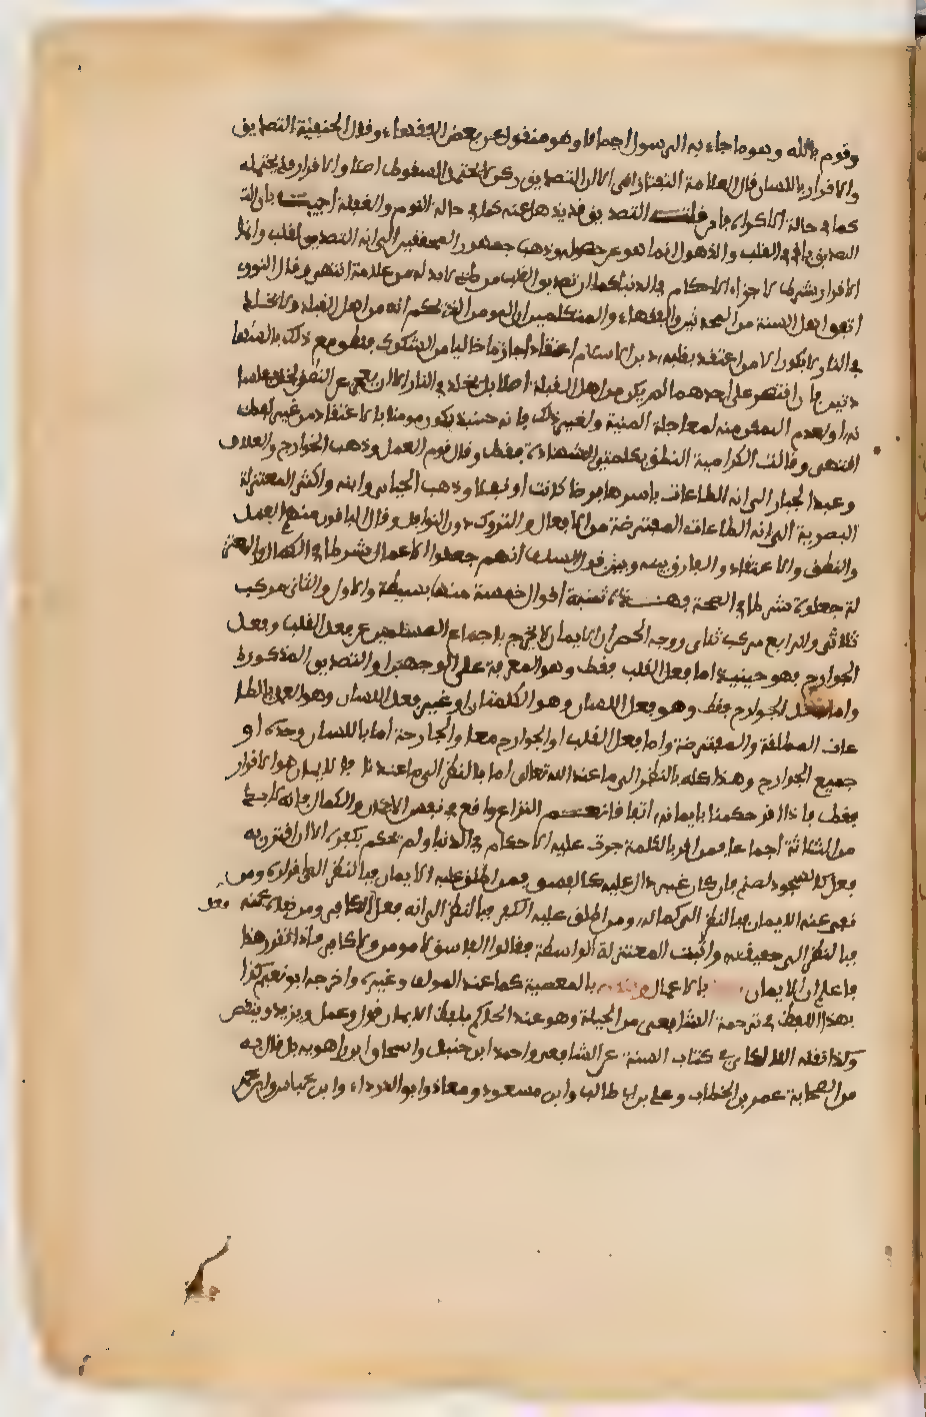 وقوم بالله وبما جاء به الرسول اجمالا وهو منقول عن بعض الفقهاء وقال الحنفية التصديق
والاقرار باللسان قال العلامة التفتازانى الا ان التصديق ركن لا يحتمل السقوط اصلا والاقرار قد يحتمله
كما فى حالة الاكراه فان قلت التصديق قد يذهل عنه كما فى حالة النوم والغفلة اجيب بان
التصديق باق فى القلب والذهول انما هو عن حصوله وذهب جمهور المحققين الى انه التصديق بالقلب وانما
الاقرار شرط لاجراء الاحكام فى الدنيا كما ان تصديق القلب امر باطن لا بد له من علامة انتهى وقال النووى
اتفق اهل السنة من المحدثين والفقهاء والمتكلمين ان المومن الذى يحكم انه من اهل القبلة ولا يخلد
فى النار لا يكون الا من اعتقد بقلبه دين الاسلام اعتقادا جازما خاليا من الشكوك ونطق مع ذلك بالشها
دتين فان اقتصر على احدهما لم يكن من اهل القبلة اصلا بل يخلد فى النار الا ان يعجز عن النطق لخلل فى لسا
نه او لعدم التمكن منه لمعاجلة المنية او لغير ذلك فانه حينئذ يكون مومنا بالاعتقاد من غير لفظ
انتهى وقالت الكرامية النطق بكلمتى الشهادة فقط وقال قوم العمل وذهب الخوارج والعلاف
وعبد الجبار الى انه الطاعات باسرها فرضا كانت او نفلا وذهب الجباى وابنه واكثر المعتزلة
البصرية الى انه الطاعات المفترضة من الافعال والتروك دون النوافل وقال الباقون منهم العمل
والنطق والاعتقاد والفارق بينه وبين قول السلف انهم جعلوا الاعمال شرطا فى الكمال والمعتز
لة جعلوه شرطا فى الصحة فهذه ثمانية اقوال خمسة منها بسيطة والاول والثانى مركب
ثلاثى والرابع مركب ثنائى ووجه الحصر ان الايمان لا يخرج باجماع المسلمين عن فعل القلب وفعل
الجوارح فهو حينئذ اما فعل القلب فقط وهو المعرفة على الوجهين او التصديق المذكور
واما فعل الجوارح فقط وهو فعل اللسان وهو الكلمتان او غير فعل اللسان وهو العمل بالطا
عات المطلقة او المفترضة واما فعل القلب والجوارح معا والجارحة اما باللسان وحده او
جميع الجوارح وهذا كله بالنظر الى ما عند الله تعالى اما بالنظر الى ما عندنا فالايمان هو الاقرار
فقط فاذا اقر حكمنا بايمانه اتفاقا نعم النزاع واقع فى نفس الايمان والكمال فانه لا بد
من الثلاثة اجماعا فمن اقر بالكلمة جرت عليه الاحكام فى الدنيا ولم نحكم بكفره الا ان اقترن به
فعل كالسجود لصنم فان كان غير دال عليه كالفسق فمن اطلق عليه الايمان فبالنظر الى اقراره ومن
نفى عنه الايمان فبالنظر الى كماله ومن اطلق عليه الكفر فبالنظر الى انه فعل فعل الكافر ومن نفاه عنه
فبالنظر الى حقيقته واثبت المعتزلة الواسطة فقالوا الفاسق لا مومن ولا كافر فاذا تقرر هذا
فاعلم ان الايمان بالاعمال وينقص بالمعصية كما عند المولف وغيره واخرجه ابو نعيم كذا
بهذا اللفظ فى ترجمة الشافعى من الحلية وهو عند الحاكم بلفظ الايمان قول وعمل ويزيد وينقص
وكذا نقله اللالكاى فى كتاب السنة عن الشافعى واحمد ابن حنبل واسحاق ابن راهويه بل قال به
من الصحابة عمر بن الخطاب وعلى بن ابى طالب وابن مسعود ومعاذ وابو الدرداء وابن عباس وابن عمر